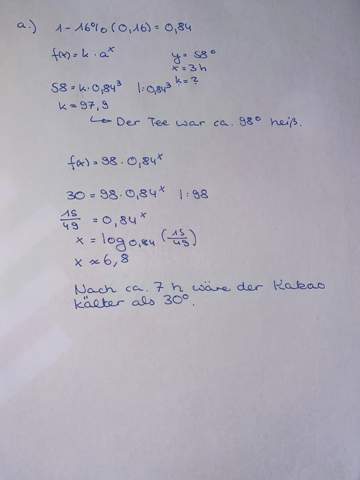 a.) 1 - 16% (0,16) = 0,84
f(x) = k · aˣ y = 58°
x = 3h
58 = k · 0,84³ |: 0,84³ k = ?
k = 97,9
↳ Der Tee war ca. 98° heiß.
f(x) = 98 · 0,84ˣ
30 = 98 · 0,84ˣ |: 98
15/49 = 0,84ˣ
x = log₀,₈₄ (15/49)
x ≈ 6,8
Nach ca. 7 h wäre der Kakao
kälter als 30°.